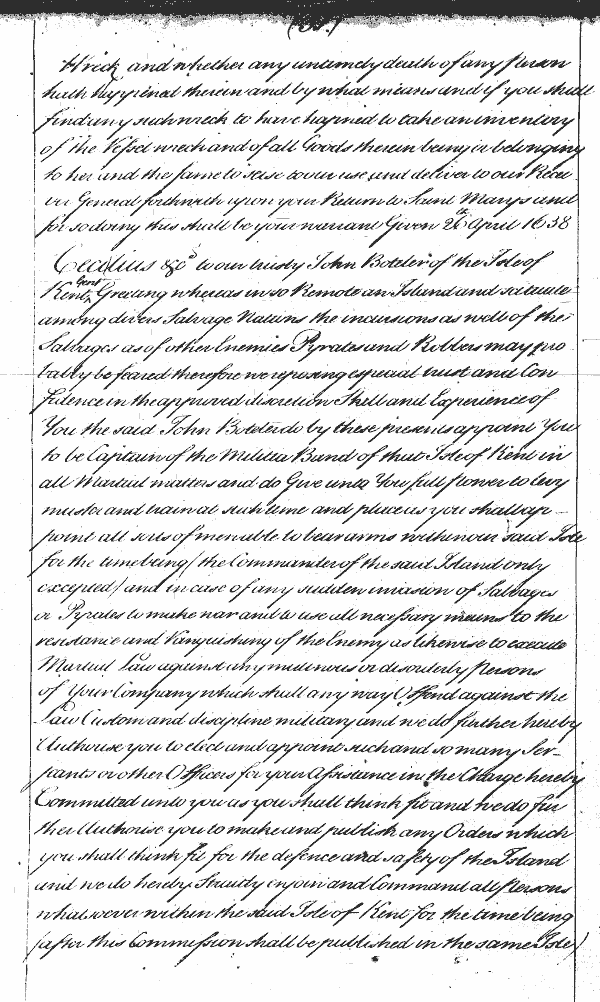 Wreck and whether any untimely death of any person
hath happened therein and by what means and if you shall
find any such wreck to have hapned to take an inventory
of the Vessel wreck and of all Goods therein being or belonging
to her and the same to seise to our use and deliver to our Recei
ver General forthwith upon your Return to Saint Marys and
for so doing this shall be your warrant Given 26th April 1638
Cecilius &ca to our trusty John Boteler of the Isle of
Kent Gent Greeting whereas in so Remote an Island and scituate
among divers Salvage Nations the incursions as well of the
Salvages as of other Enemies Pyrates and Robbers may pro
bably be feared therefore we reposing especial trust and Con
fidence in the approved discretion Skill and Experience of
You the said John Boteler do by these presents appoint You
to be Captain of the Militia Band of that Isle of Kent in
all Martial matters and do Give unto You full power to levy
muster and train at such time and place as you shall ap-
point all sorts of men able to bear arms within our said Isle
for the time being (the Commander of the said Island only
excepted) and in case of any sudden invasion of Salvages
or Pyrates to make war and to use all necessary means to the
resistance and Vanquishing of the Enemy as likewise to execute
Martial Law against any mutinous or disorderly persons
of Your Company which shall any way Offend against the
Law Custom and discipline military and we do further hereby
Authorise you to elect and appoint such and so many Ser-
jants or other Officers for your Assistance in the Charge hereby
Committed unto you as you shall think fit and we do fur
ther Authorise you to make and publish any Orders which
you shall think fit for the defence and safety of the Island
and we do hereby Straitly enjoin and Command all persons
whatsoever within the said Isle of Kent for the time being
(after this Commission shall be published in the same Isle)